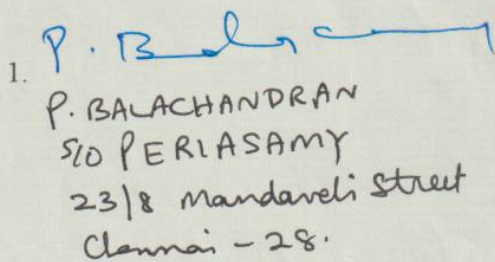 1. P. Balac
P. BALACHANDRAN
S/O PERIASAMY
23/8 Mandaveli Street
Chennai - 28.